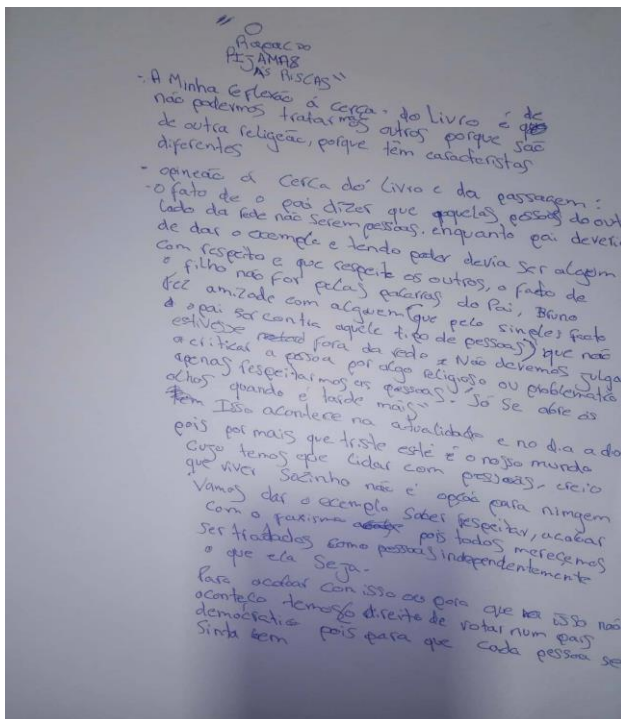 " O
Rapaz do
PIJAMAS
ÀS RISCAS"
- A Minha reflexão á cerca. do Livro é de
não podermos tratarmos outros porque são
de outra religeão, porque têm caracteristas
diferentes
- opineão á cerca do Livro e da passagem:
- O fato de o pai dizer que aquelas pessoas do out
lado da rede não serem pessoas. enquanto pai deveri
de dar o exemplo e tendo poder devia ser alguem
com respeito e que respeite os outros, o facto de
o filho não for pelas palavras do Pai, Bruno
fez amizade com alguem (que pelo simples facto
d o pai ser contra aquele tipo de pessoas) que não
estivesse fora da rede. Não devemos julga
a criticar a pessoa por algo religioso ou problematico
apenas respeitarmos as pessoas. "Só se abre os
olhos quando é tarde mais"
Isso acontece na atualidade e no dia a dia
pois por mais que triste esté é o nosso mundo
cujo temos que lidar com pessoas, creio
que viver Sozinho não é opção para nimgem
Vamos dar o exemplo saber respeitar, acabar
com o racismo pois todos merecemos
ser tratados como pessoas independentemente
o que ela Seja.
Para acabar con isso ou para que isso não
aconteça temos o direito de votar num pais
democratio pois para que cada pessoa se
Sinta bem